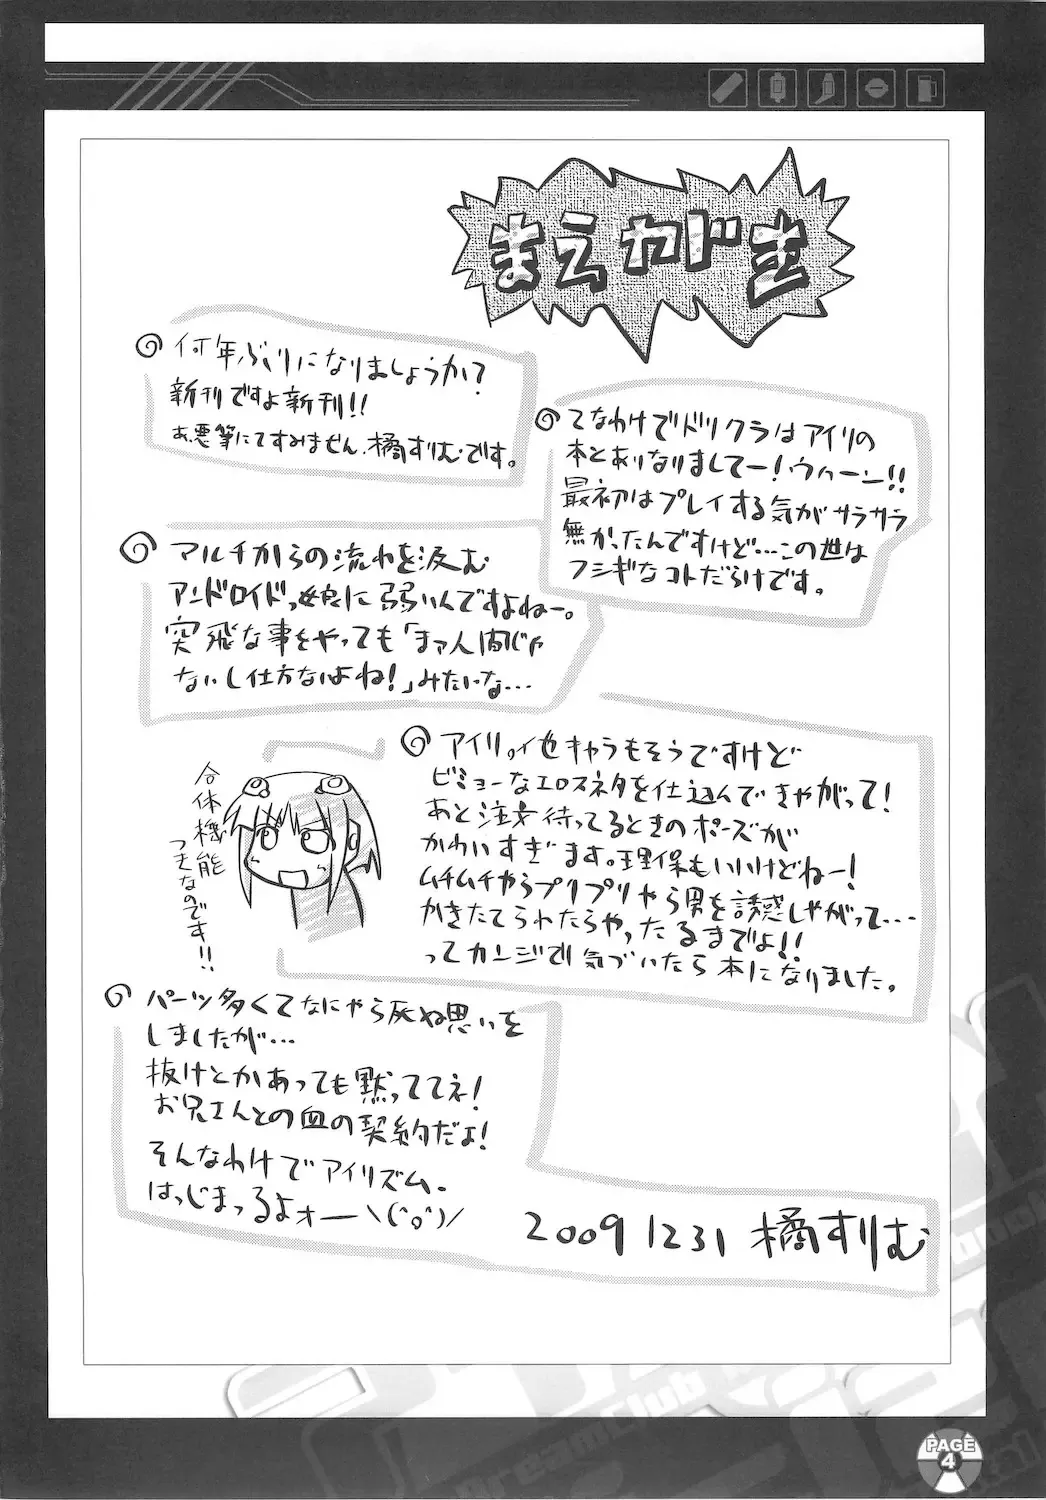 まえがき
何年ぶりになりましょうか?
新刊ですよ新刊!!
あ、悪筆にてすみません、橘すりむです。
てなわけでドリクラはアイリの
本とありなりましてー!ウィーン!!
最初はプレイする気がサラサラ
無かったんですけど…この世は
フシギなコトだらけです。
マルチからの流れを汲む
アンドロイドっ娘に弱いんですよねー。
突飛な事をやっても「まァ人間じゃ
ないし仕方ないよね!」みたいな…
アイリの他キャラもそうですけど
ビミョーなエロスネタを仕込んできやがって!
あと注文待ってるときのポーズが
かわいすぎます。理保もいいけどねー!
ムチムチやらプリプリやら男を誘惑しやがって…
かきたてられたらやったるまでよ!!
ってカンジで気づいたら本になりました。
合体機能
つきなのです!!
パーツ多くてなにやら死ぬ思いを
しましたが…
抜けとかあっても黙っててネ!
お兄さんとの血の契約だよ!
そんなわけでアイリズム、
はっじまっるよォー\(^o^)/
2009 1231 橘すりむ
DreamClub
PAGE
4